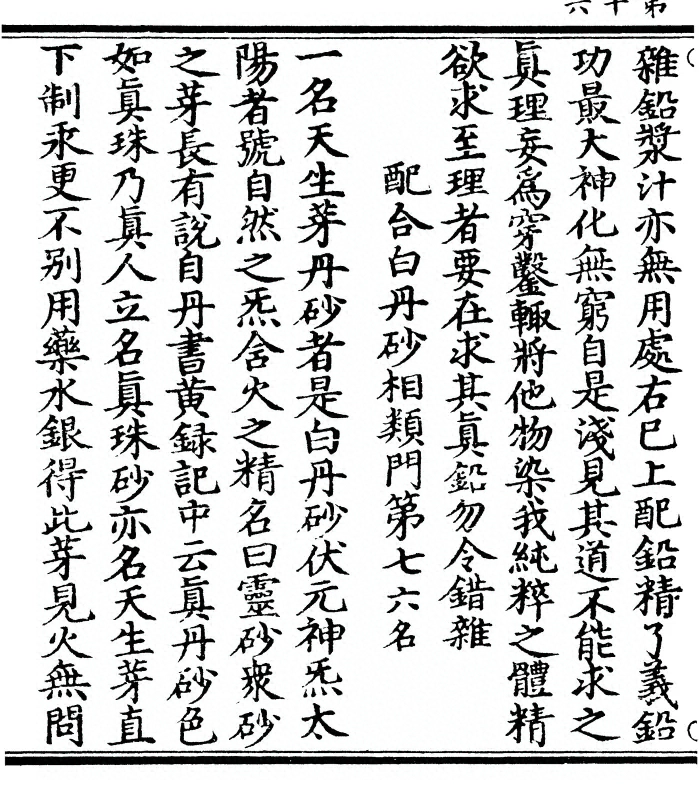 第十六
雜鉛漿汁亦無用處右巳上配鉛精了義鉛
功最大神化無窮自是淺見其道不能求之
眞理妄爲穿鑿輙將他物染我純粹之體精
欲求至理者要在求其眞鉛勿令錯雜
配合白丹砂相類門第七六名
一名天生芽丹砂者是白丹砂伏元神炁太
陽者號自然之炁含火之精名曰靈砂衆砂
之芽長有說自丹書黃録記中云眞丹砂色
如眞珠乃眞人立名眞珠砂亦名天生芽直
下制汞更不别用藥水銀得此芽見火無問